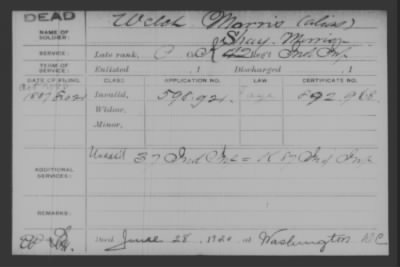 DEAD
Welsh Morris (alias)
NAME OF SOLDIER:
Shay, Morris
SERVICE:
Late rank, Co. 42 Ind Inf.
TERM OF SERVICE:
Enlisted , 1 Discharged , 1
DATE OF FILING. CLASS. APPLICATION NO. LAW. CERTIFICATE NO.
1887 Invalid, 598.921. 892.988
Widow,
Minor,
37 Ind Inf = K 87 Ind Inf
ADDITIONAL SERVICES:
REMARKS:
Died June 28, 1920, at Washington DC